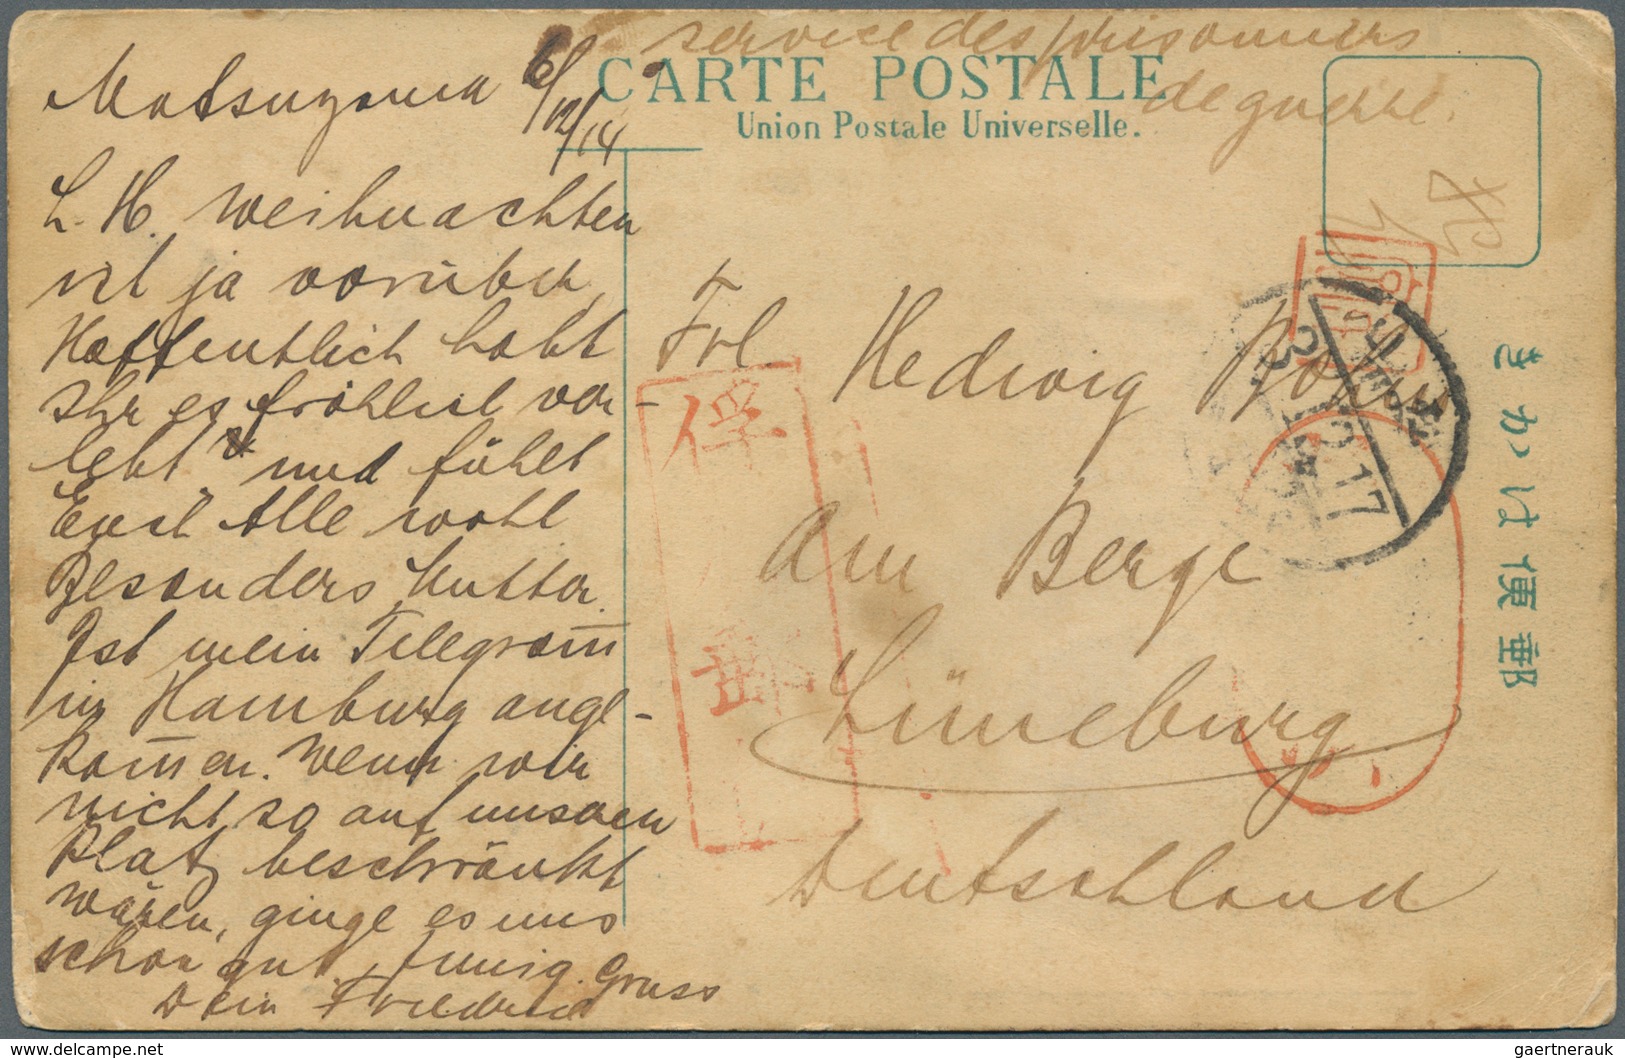 service des prisonniers
de guerre.
CARTE POSTALE
Union Postale Universelle.
Matsuyama 6/12/14
L. H. Weihnachten
ist ja vorüber
Hoffentlich habt
Ihr es fröhlich ver-
lebt und fühlt
Euch Alle wohl
Besonders Mutter.
Ist mein Telegram̅
in Hamburg ange-
kom̅en. Wenn wir
nicht so auf unseren
Platz beschränkt
wären, ginge es uns
schon gut. Innig. Gruss
Dein Friedrich
Frl. Hedwig
Am Berge
Lüneburg
Deutschland
きかは便郵
俘
17
delcampe.net
gaertnerauk